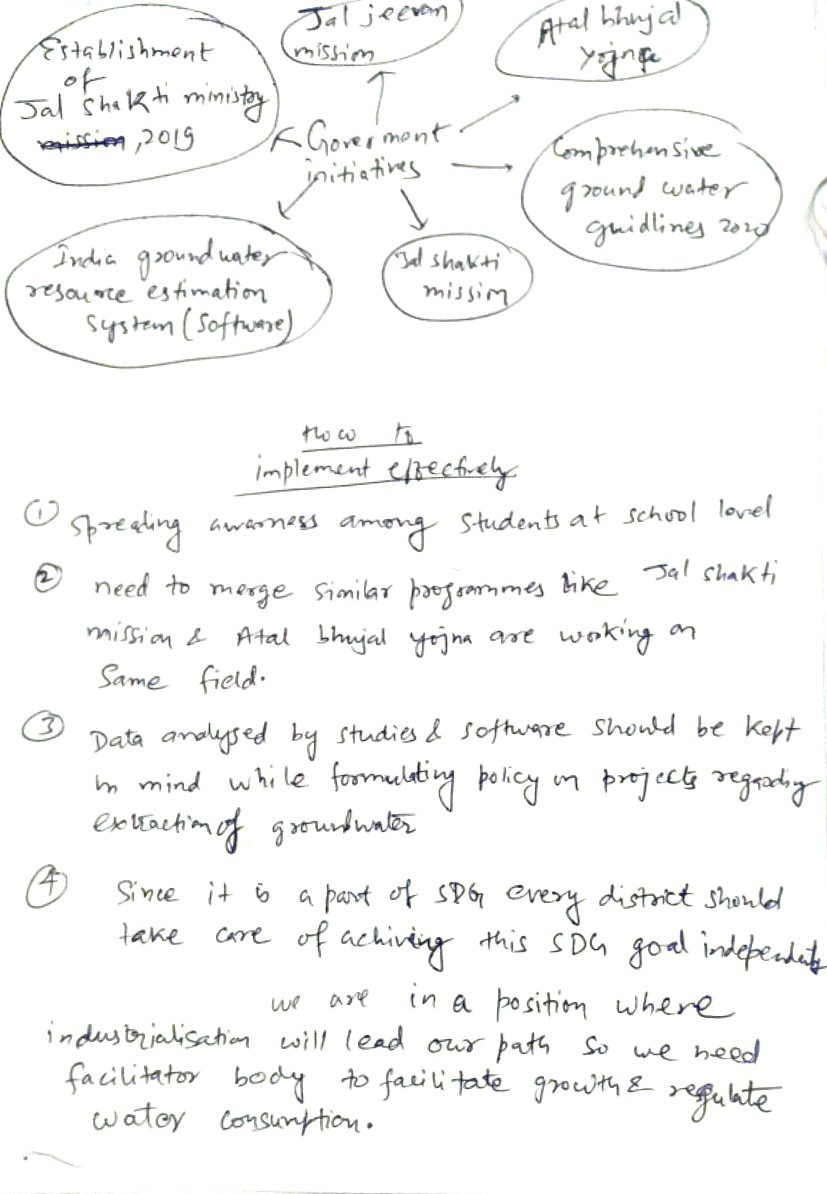 Jal jeevan
mission
Atal bhujal
yojna
Establishment
of
Jal Shakti ministry
mission, 2019
Goverment
initiatives
Comprehensive
ground water
guidlines 2020
India groundwater
resource estimation
System (Software)
Jal shakti
mission
How to
implement effectively
① Spreading awarness among Students at school level
② need to merge similar programmes like Jal shakti
mission & Atal bhujal yojna are working on
Same field.
③ Data analysed by studies & software should be kept
in mind while formulating policy on projects regarding
extraction of groundwater
④ Since it is a part of SDG every district should
take care of achiving this SDG goal independently
we are in a position where
industrialisation will lead our path so we need
facilitator body to facilitate growth & regulate
water consumption.